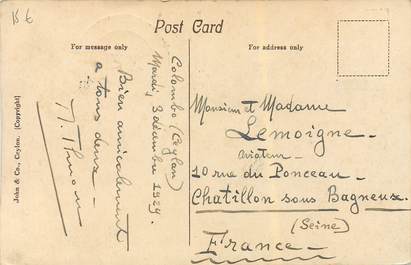 15 €
Post Card
For message only
For address only
Colombo (Ceylan)
Mardi 3 décembre 1929.
Bien amicalement
à tous deux -
John & Co., Ceylon. (Copyright)
Monsieur et Madame
Lemoigne -
aviateur -
10 rue du Ponceau -
Chatillon sous Bagneux.
(Seine)
France -